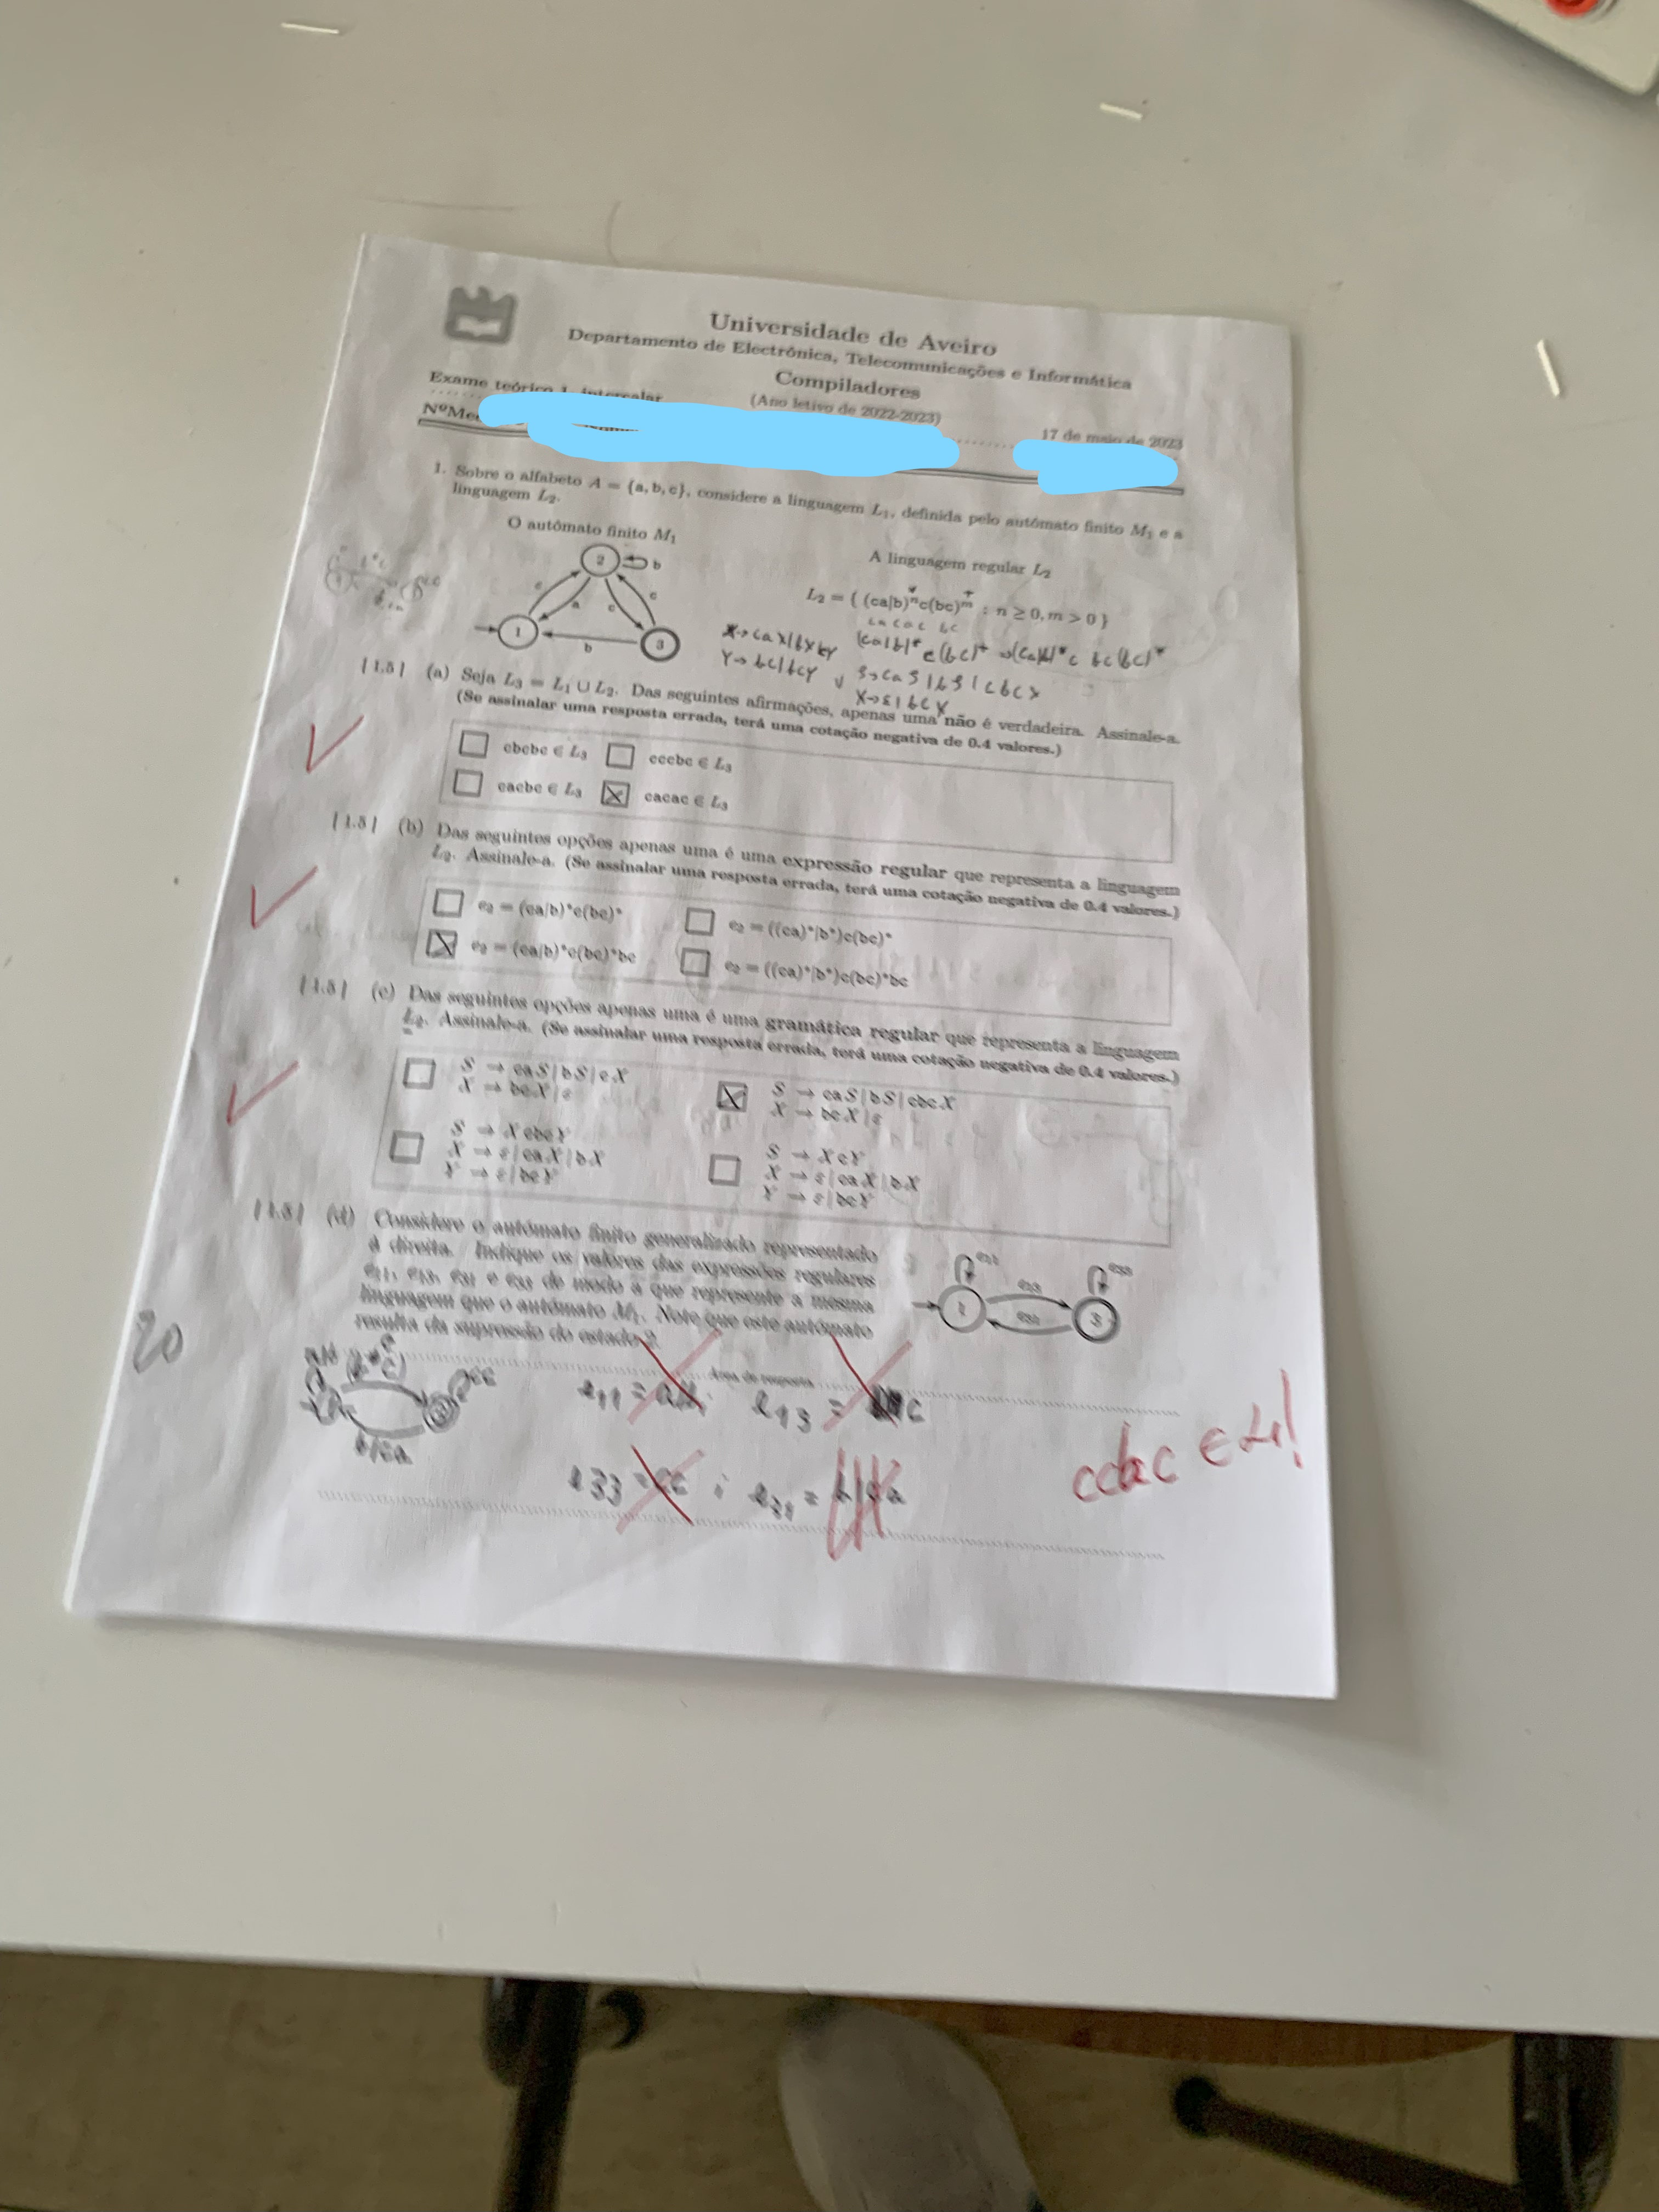 Universidade de Aveiro
Departamento de Electrónica, Telecomunicações e Informática
Compiladores
Exame teórico 1, intercalar
(Ano letivo de 2022-2023)
17 de maio de 2023
NºMec
1. Sobre o alfabeto A = {a, b, c}, considere a linguagem L₁, definida pelo autómato finito M₁ e a
linguagem L₂.
O autómato finito M₁
A linguagem regular L₂
L₂ = { (ca|b)ⁿc(bc)ᵐ : n ≥ 0, m > 0 }
2 b
c a c c
1 b 3
(ca|b)* c(bc)⁺ → (ca|b)*c bc(bc)*
Y→ bc|bcY
S→ca S | b S | c b c X
X→ε | b c X
[ 1.5 ] (a) Seja L₃ = L₁ ∪ L₂. Das seguintes afirmações, apenas uma não é verdadeira. Assinale-a.
(Se assinalar uma resposta errada, terá uma cotação negativa de 0.4 valores.)
cbcbc ∈ L₃ cccbc ∈ L₃
cacbc ∈ L₃ cacac ∈ L₃
[ 1.5 ] (b) Das seguintes opções apenas uma é uma expressão regular que representa a linguagem
L₂. Assinale-a. (Se assinalar uma resposta errada, terá uma cotação negativa de 0.4 valores.)
e₂ = (ca|b)*c(bc)* e₂ = ((ca)*|b*)c(bc)*
e₂ = (ca|b)*c(bc)*bc e₂ = ((ca)*|b*)c(bc)*bc
[ 1.5 ] (c) Das seguintes opções apenas uma é uma gramática regular que representa a linguagem
L₂. Assinale-a. (Se assinalar uma resposta errada, terá uma cotação negativa de 0.4 valores.)
S → caS | bS | cX
X → bcX | ε
S → caS | bS | cbcX
X → bcX | ε
S → XcbcY
X → ε | caX | bX
Y → ε | bcY
S → XcY
X → ε | caX | bX
Y → ε | bcY
[ 1.5 ] (d) Considere o autómato finito generalizado representado
à direita. Indique os valores das expressões regulares
e₁₁, e₁₃, e₃₁ e e₃₃ de modo a que represente a mesma
linguagem que o autómato M₁. Note que este autómato
resulta da supressão do estado 2.
e₁₁ e₃₃
e₁₃
1 3
e₃₁
20
Área de resposta
e₁₁ = e₁₃ =
e₃₃ = cc ; e₃₁ = b|ca
b|ca
∈ L₁!